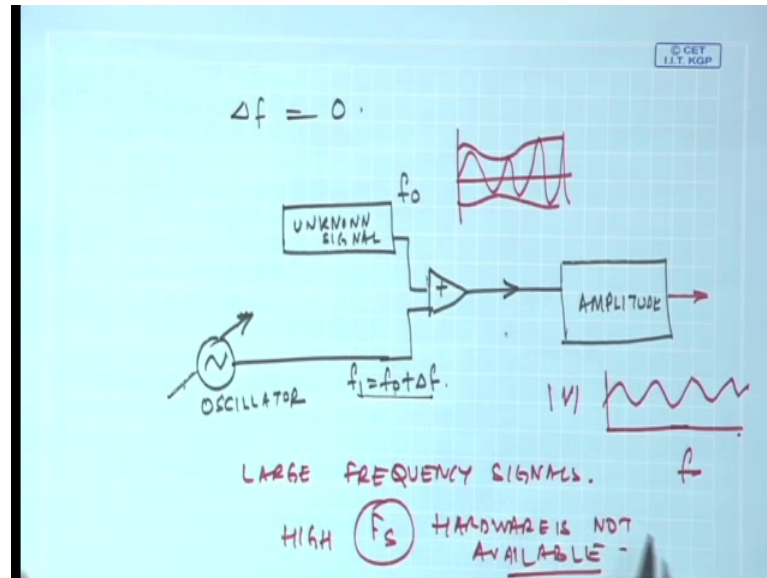 © CET
I.I.T. KGP
Δf = 0.
f0
UNKNONN
SIGNAL
+
AMPLITUDE
f1 = f0 + Δf.
OSCILLATOR
|V|
f
LARGE FREQUENCY SIGNALS.
HIGH Fs HARDWARE IS NOT
AVAILABLE -